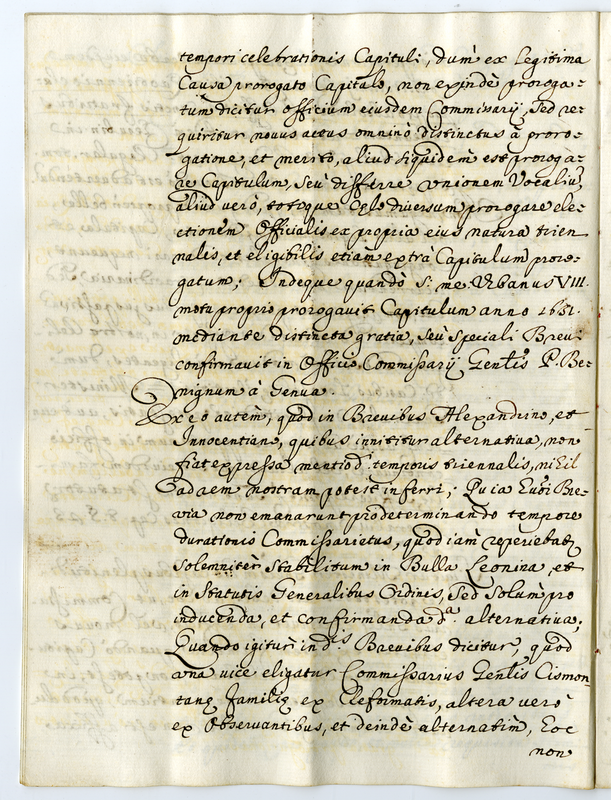 tempori celebrationis Capituli, dum ex legitima
Causa prorogato Capitulo, non exinde proroga=
tum dicitur officium eiusdem Commissarij, Sed re=
quiritur nouus actus omninò distinctus à proro=
gatione, et merito, aliud siquidem est prorogà=
re Capitulum, Seù differre unionem Vocaliũ,
aliud verò, totoque Cęlo diuersum, prorogare ele=
ctionem Officialis, ex propria eius natura trien
nalis, et eligibilis etiam extrà Capitulum proro=
gatum; Indeque quandò S: me: Urbanus VIII.
motu proprio prorogauit Capitulum anno 1631.
mediante distincta gratia, seù speciali Breui
confirmauit in Officio Commissarij Gen̄lis P. Be=
nignum à Genua.
Ex eo autem, quod in Breuibus Alexandrino, et
Innocentiano, quibus innititur alternatiua, non
fiat expressa mentio d. temporis triennalis, nihil
ad rem nostram potest inferri; Quia huiõi Bre=
via non emanarunt prodeterminando tempore
durationis Commissarietus, quod iam reperiebatʳ
solemnitèr stabilitum in Bulla Leonina, et
in Statutis Generalibus Ordinis, Sed Solum pro
inducenda, et confirmanda d.ᵃ alternatiua;
Quando igitur in d.ⁱˢ Breuibus dicitur, quod
una vice eligatur Commissarius Gen̄lis Cismon=
tanę familię ex Reformatis, altera verò
ex Obseruantibus, et deindè alternatim, hoc
non